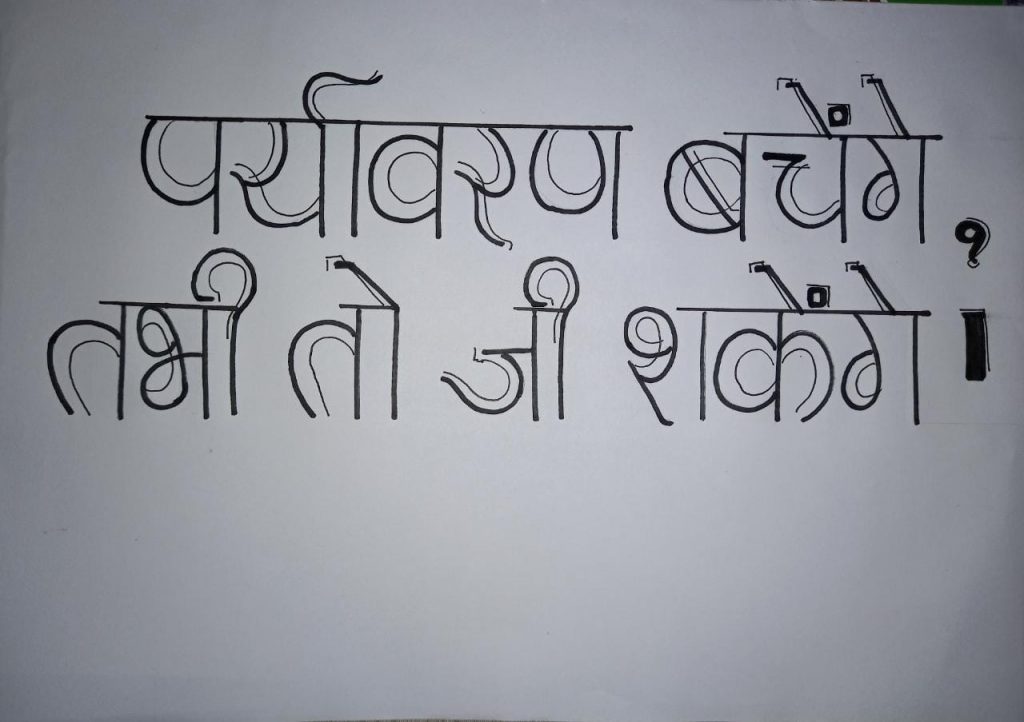 पर्यावरण बचेंगे,
तभी तो जी शकेंगे।